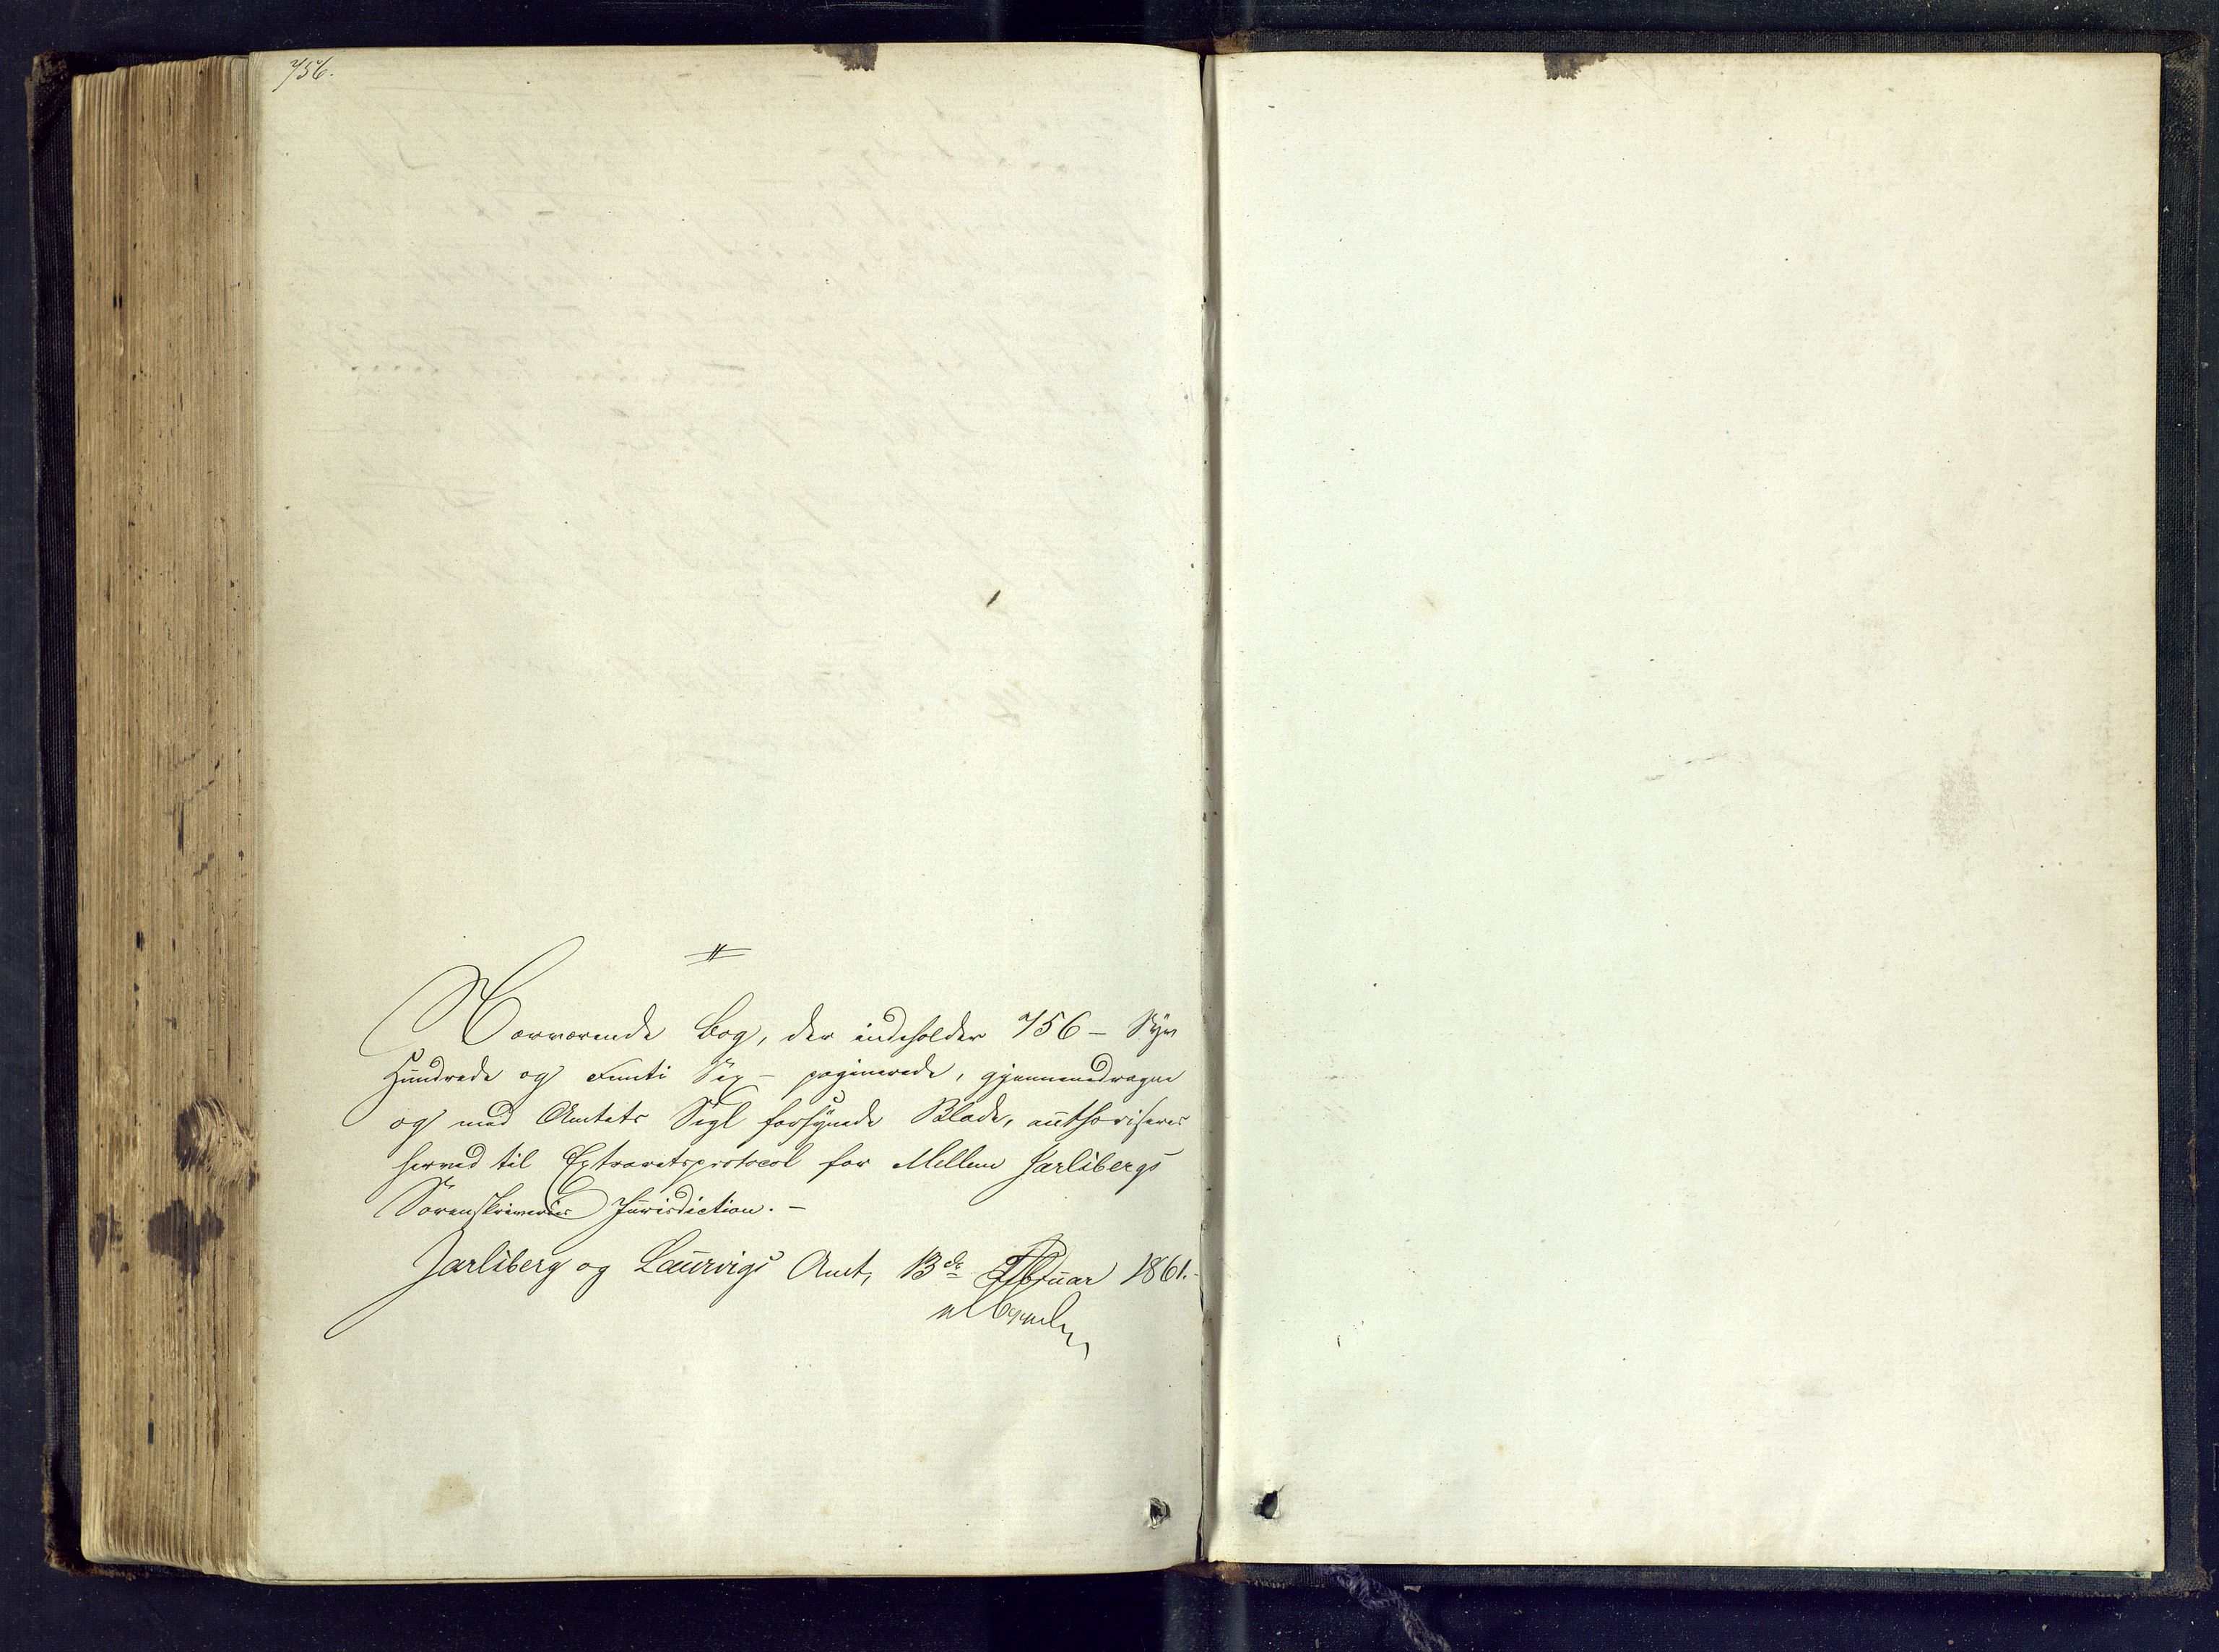 756.
Nærværende Bog, der indeholder 756 – Syv
Hundrede og Femti Sex – paginerede, gjennemdragne
og med Amtets Segl forsynede Blade, authoriseres
herved til Extraretsprotocol for Mellem Jarlsbergs
Sorenskriveries Jurisdiction. –
Jarlsberg og Laurvigs Amt, 13de Februar 1861.